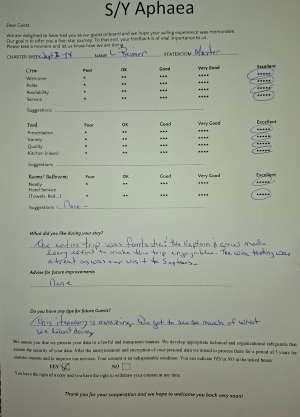 S/Y Aphaea
Dear Guest
We are delighted to have had you as our guest on board and we hope your sailing experience was memorable.
Our goal is to offer you a five-star journey. To that end, your feedback is of vital importance to us.
Please take a moment and let us know how we are doing.
CHARTER WEEK NAME STATEROOM Master
Crew Poor OK Good Very Good Excellent
Welcome * ** *** **** *****
Polite * ** *** **** *****
Availability * ** *** **** *****
Service * ** *** **** *****
Suggestions
Food Poor OK Good Very Good Excellent
Presentation * ** *** **** *****
Variety * ** *** **** *****
Quality * ** *** **** *****
Kitchen (roles) * ** *** **** *****
Suggestions
Rooms/ Bathrooms Poor OK Good Very Good Excellent
Neatly * ** *** **** *****
Hotel Service
(Towels, Bed...) * ** *** **** *****
Suggestions None
What did you like during your stay?
The entire trip was fantastic! The Captain & crew made
every effort to make this trip enjoyable. The wine tasting was
a treat as was our visit to
Advise for future improvements
None
Do you have any tips for future Guests?
This itinerary is amazing. We got to see so much of what
we
We assure you that we process your data in a lawful and transparent manner. We develop appropriate technical and organizational safeguards that
ensure the security of your data. After the anonymization and encryption of your personal data we intend to process them for a period of 5 years for
statistic reasons and to improve our services. Your consent is an indispensable condition. You can indicate YES or NO in the below boxes
YES NO
You have the right of a copy and you have the right to withdraw your consent at any time.
Thank you for your cooperation and we hope to welcome you back very soon!